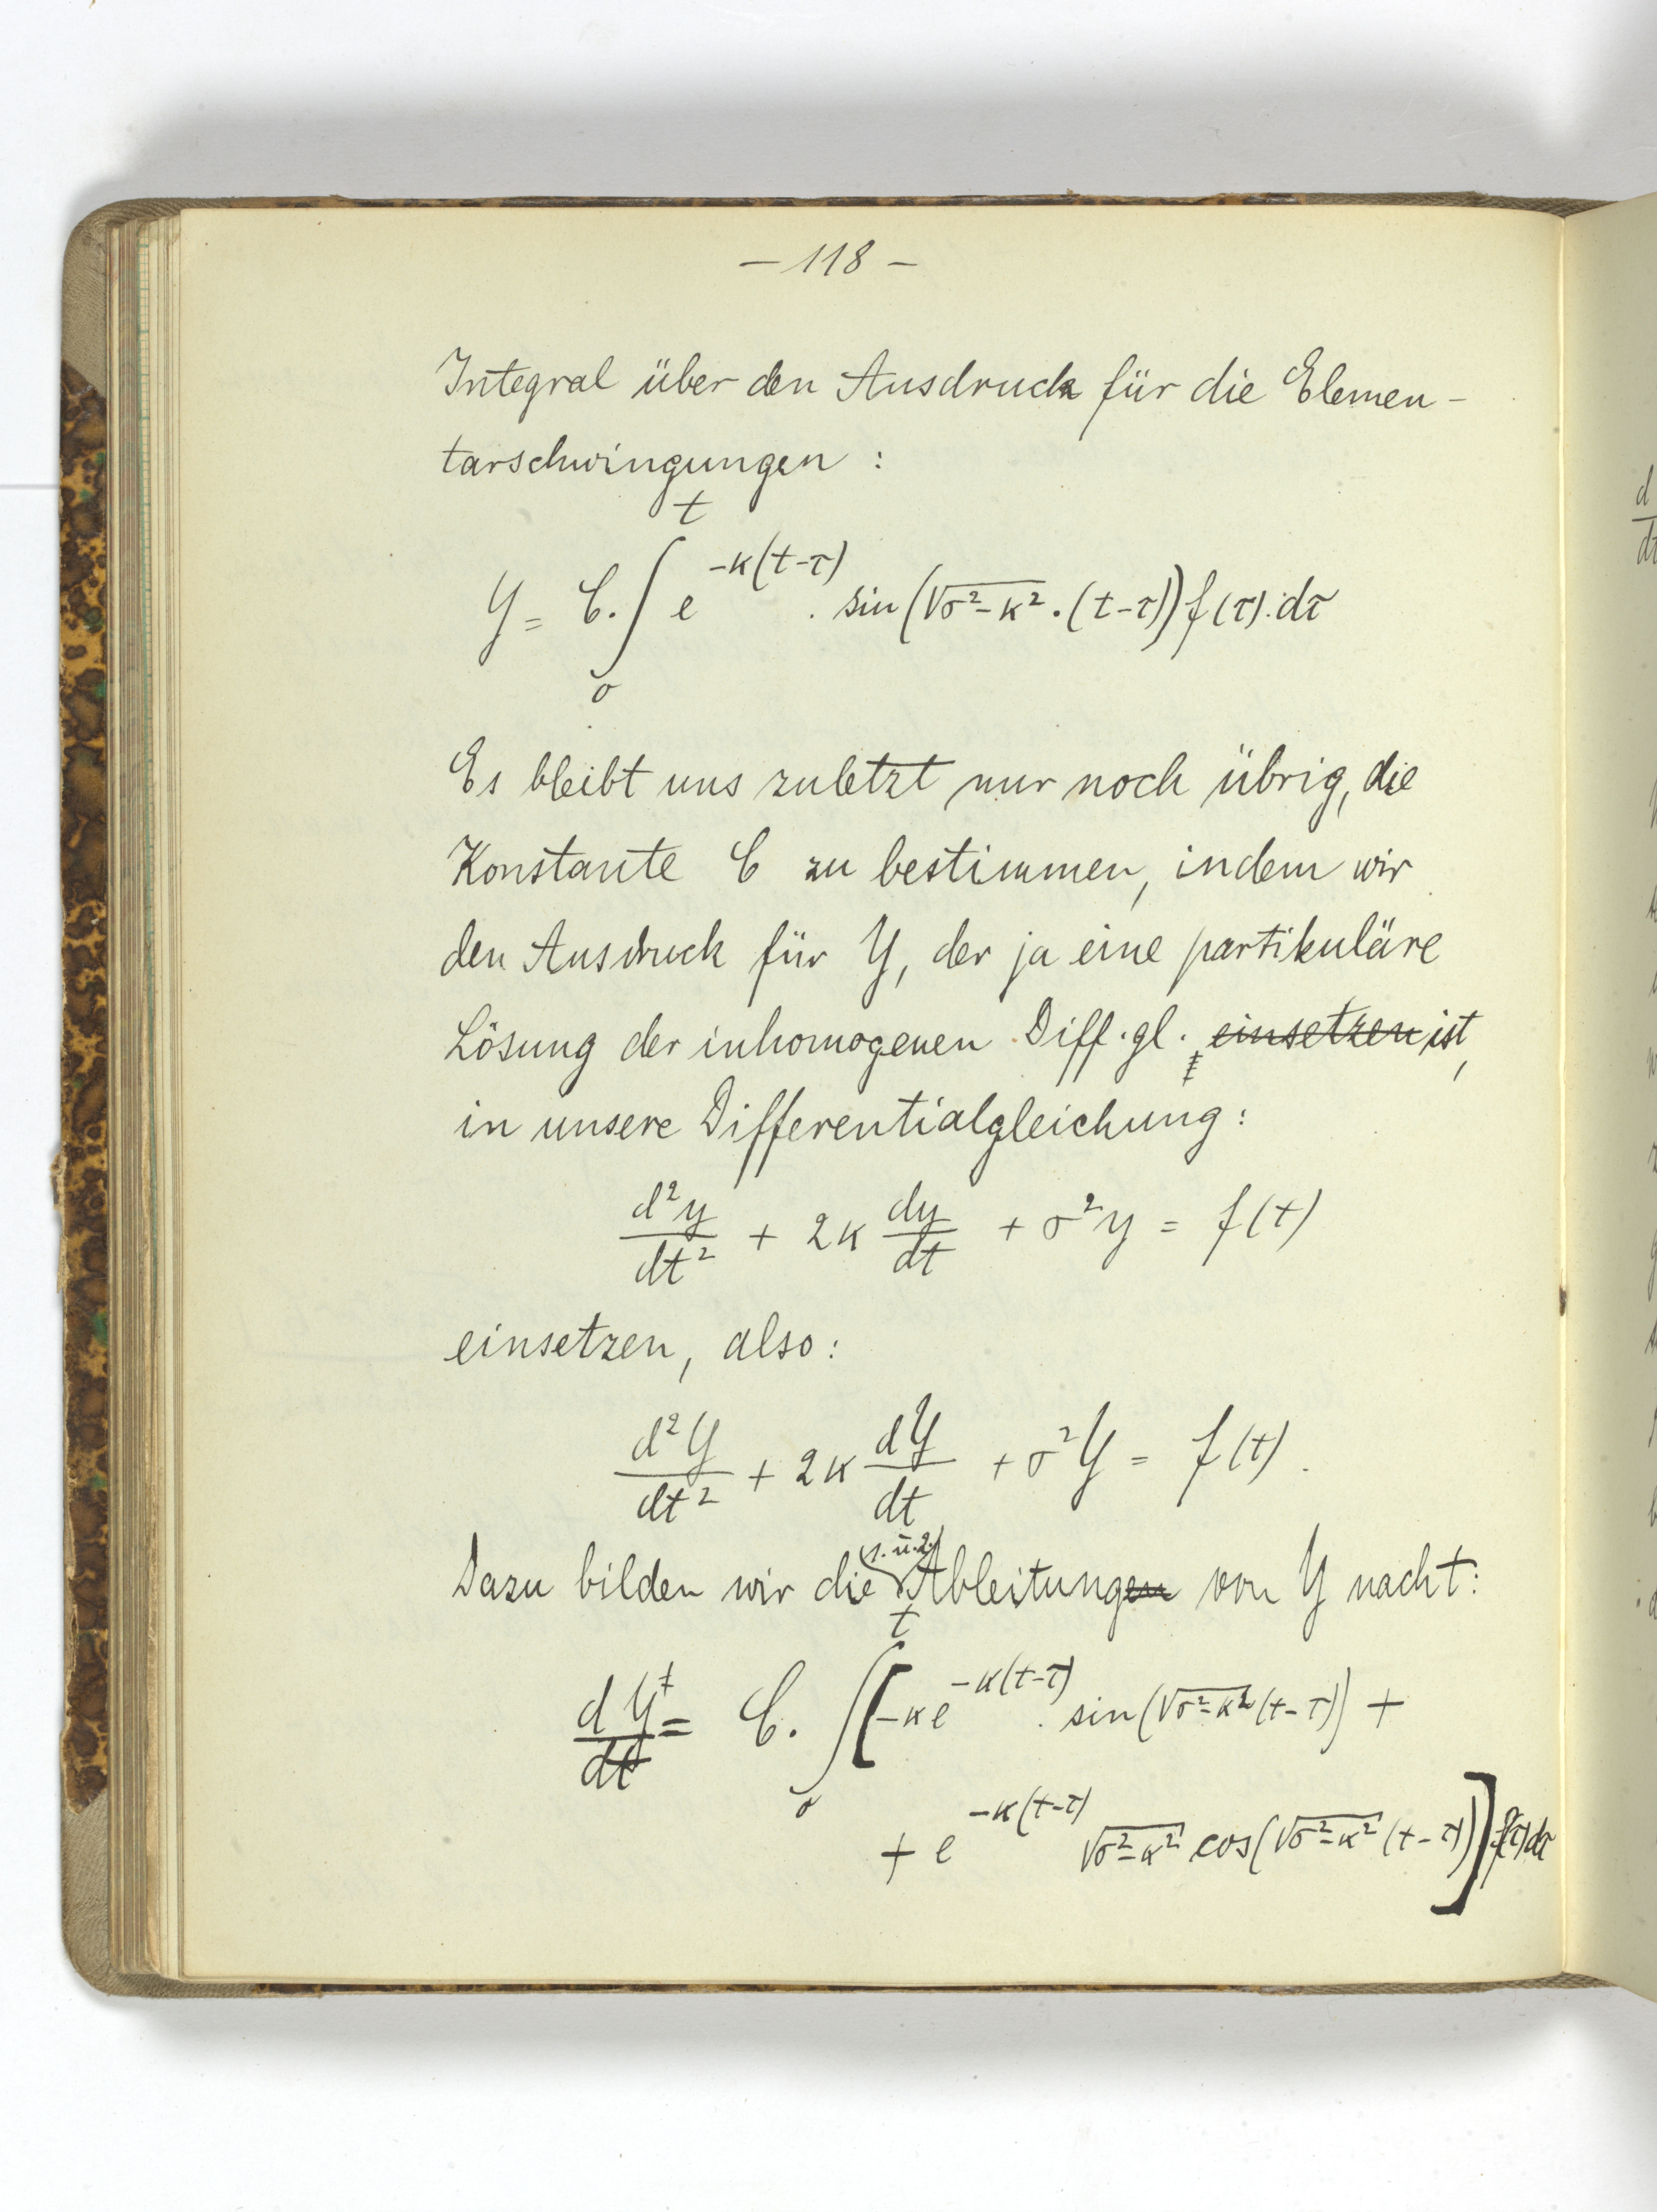 – 118 –
Integral über den Ausdruck für die Elemen-
tarschwingungen :
Y = C. ∫₀ᵗ e^{-κ(t-τ)} . sin(√(σ²-κ²) . (t-τ)) f(τ).dτ
Es bleibt uns zuletzt nur noch übrig, die
Konstante C zu bestimmen, indem wir
den Ausdruck für Y, der ja eine partikuläre
Lösung der inhomogenen Diff.gl. einsetzen ist,
in unsere Differentialgleichung:
d²y/dt² + 2κ dy/dt + σ²y = f(t)
einsetzen, also:
d²Y/dt² + 2κ dY/dt + σ²Y = f(t).
(1. u. 2.)
Dazu bilden wir die Ableitungen von Y nach t:
dY/dt = C. ∫₀ᵗ [-κe^{-κ(t-τ)} . sin(√(σ²-κ²) (t-τ)) +
+ e^{-κ(t-τ)} √(σ²-κ²) cos(√(σ²-κ²) (t-τ))] f(τ)dτ